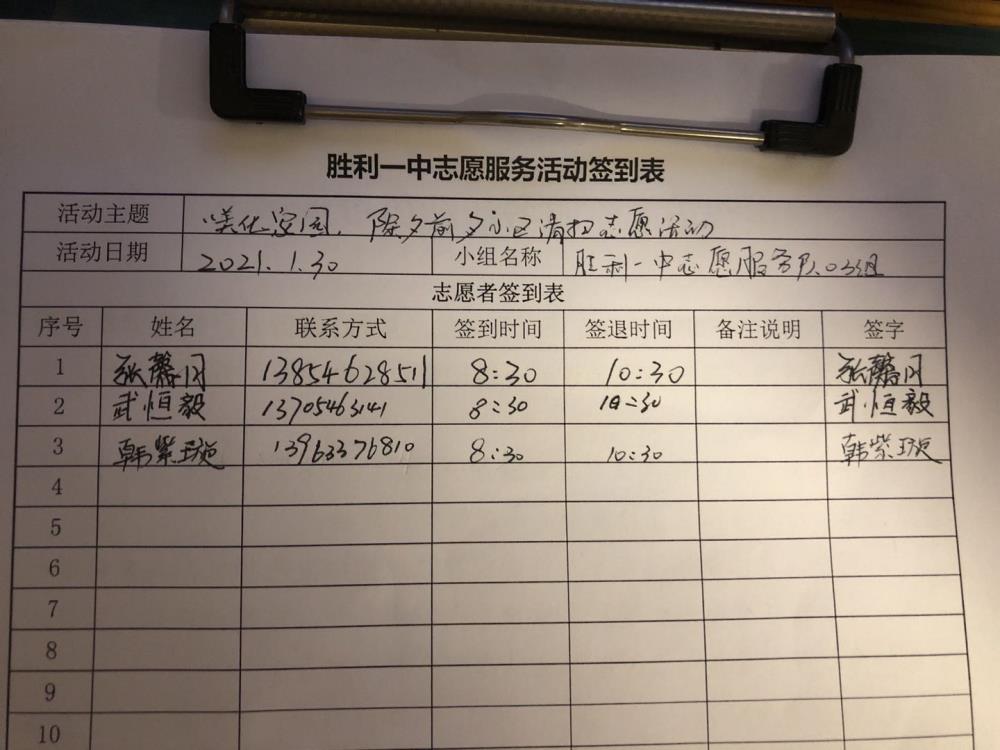 胜利一中志愿服务活动签到表
活动主题 美化家园，除夕前夕小区清扫志愿活动
活动日期 2021.1.30 小组名称 胜利一中志愿服务队03组
志愿者签到表
序号 姓名 联系方式 签到时间 签退时间 备注说明 签字
1 张馨月 13854628511 8:30 10:30 张馨月
2 武恒毅 13705463141 8:30 10:30 武恒毅
3 韩紫璇 13963376810 8:30 10:30 韩紫璇
4
5
6
7
8
9
10